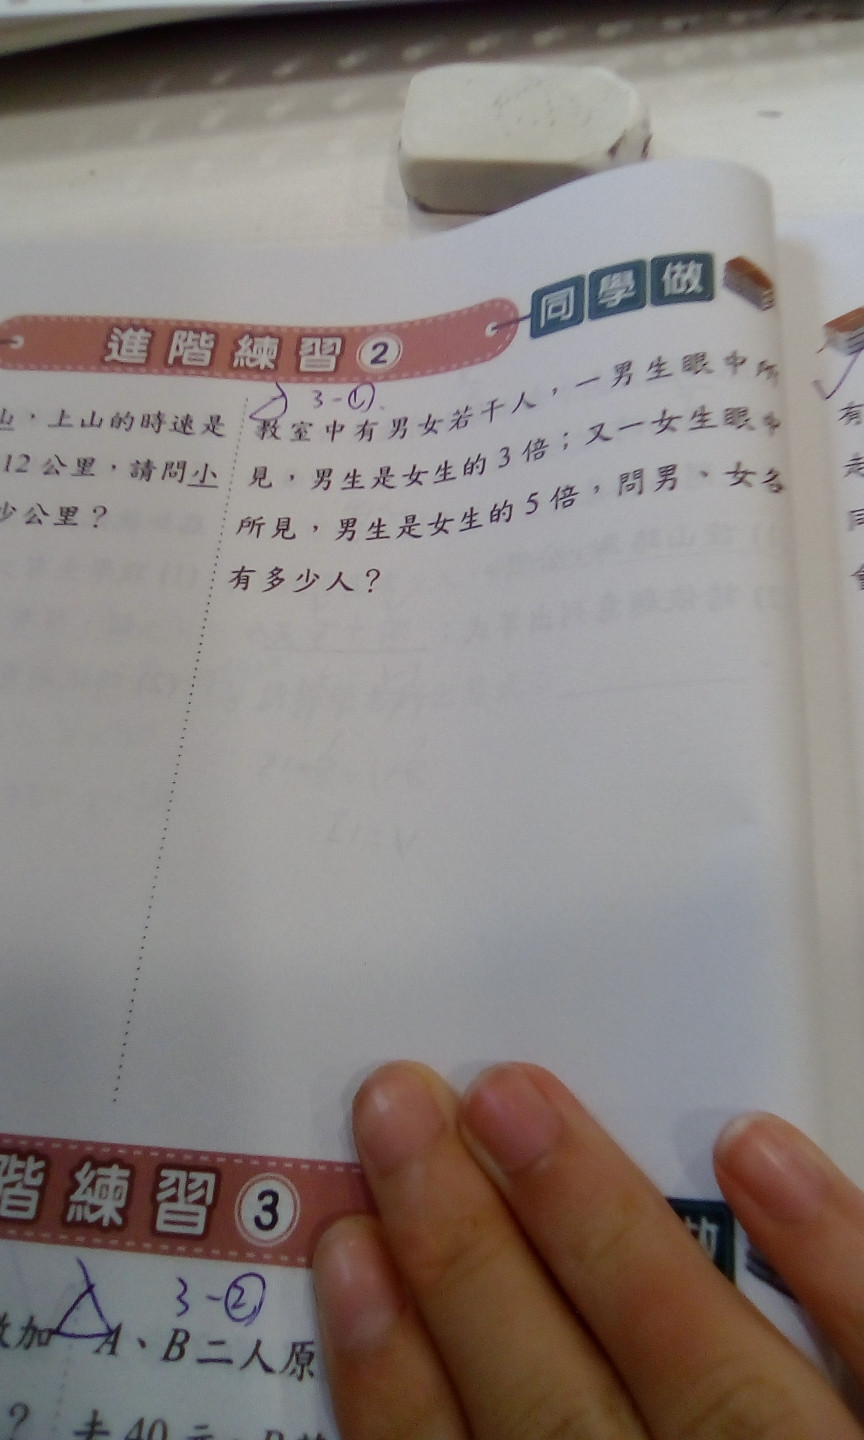 進階練習2
同學做
山,上山的時速是
12公里,請問小
少公里?
3-①
教室中有男女若干人,一男生眼中所
見,男生是女生的3倍;又一女生眼中
所見,男生是女生的5倍,問男、女各
有多少人?
有
走
同
會
階練習3
做
3-②
加
A、B二人原
?
去40元,B